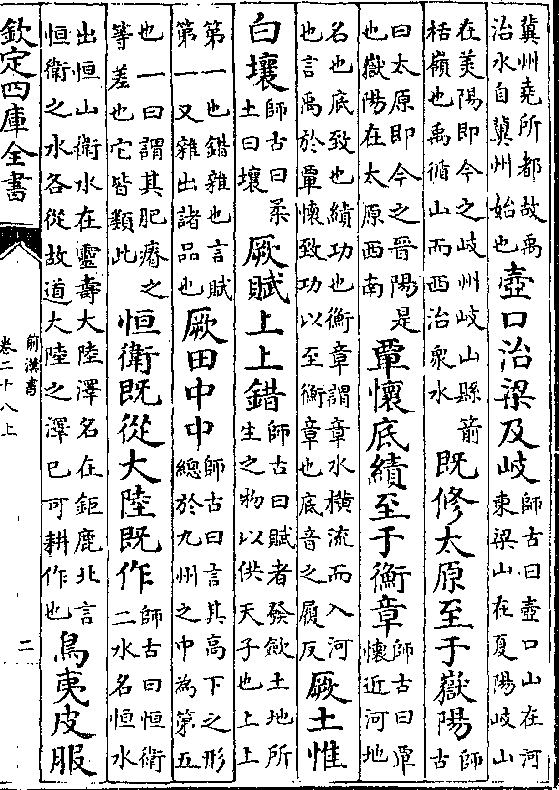 冀州堯所都故禹治水自冀州始也壺口治梁及岐師古曰壺口山在河東梁山在夏陽岐山
在美陽即今之岐州岐山縣箭栝嶺也禹循山而西治衆水既修太原至于嶽陽師古
曰太原即今之晉陽是也嶽陽在太原西南覃懷底績至于衡章師古曰覃懷近河地
名也底致也績功也衡章謂章水橫流而入河也言禹於覃懷致功以至衡章也底音之履反厥土惟
白壤師古曰柔土曰壤厥賦上上錯師古曰賦者發歛土地所生之物以供天子也上上
第一也錯雜也言賦第一又雜出諸品也厥田中中師古曰言其高下之形總於九州之中為第五
也一曰謂其肥瘠之等差也它皆類此恒衛既從大陸既作師古曰恒衛二水名恒水
出恒山衛水在靈壽大陸澤名在鉅鹿北言恒衛之水各從故道大陸之澤已可耕作也鳥夷皮服
欽定四庫全書
前漢書
卷二十八上
二